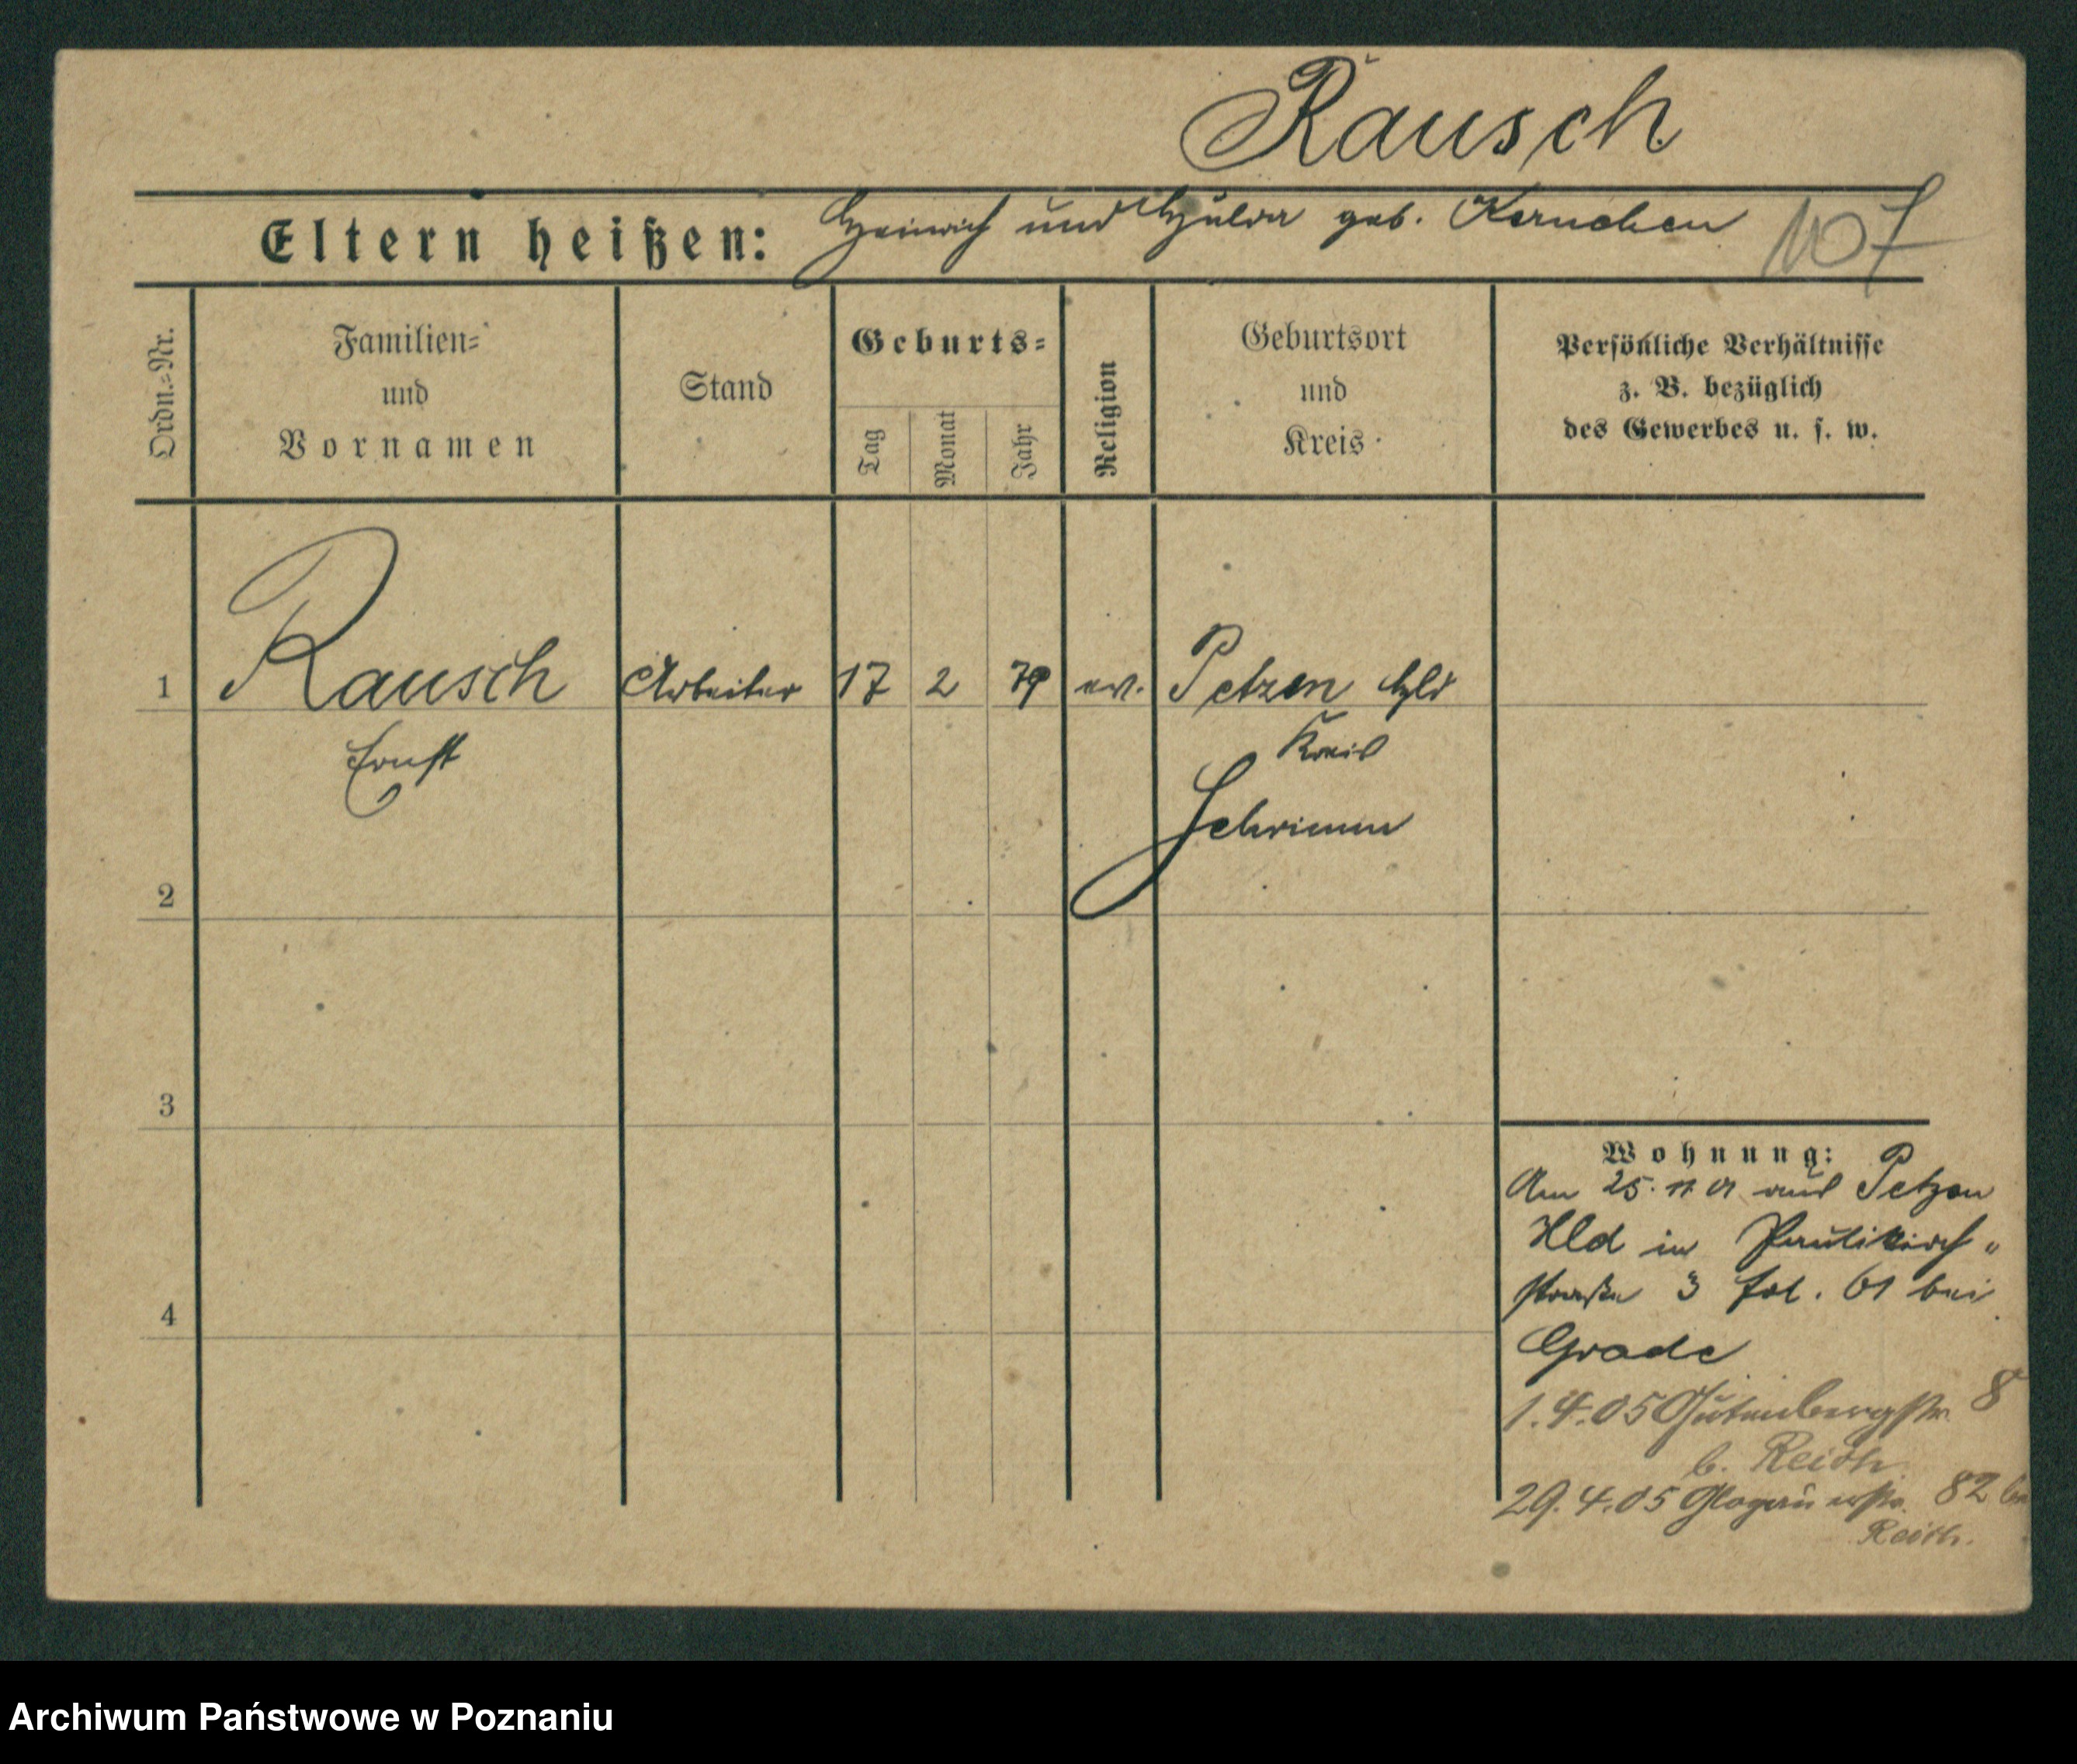 Rausch
Eltern heißen: Heinrich und Hulda geb. Kernchen
107
Ordn.=Nr.
Familien=
und
Vornamen
Stand
Geburts=
Tag
Monat
Jahr
Religion
Geburtsort
und
Kreis
Persönliche Verhältnisse
z. B. bezüglich
des Gewerbes u. s. w.
1 Rausch Arbeiter 17 2 79 ev. Petzen Hld
Ernst Kreis
Schrimm
2
3
4
Wohnung:
Am 25. 11 01 aus Petzen
Hld in Paulikirch„
straße 3 bei
Grade
1.4.05 Gutenbergstr. 8
b. Reich
29.4.05 Glogauerstr. 82
Reich.
Archiwum Państwowe w Poznaniu